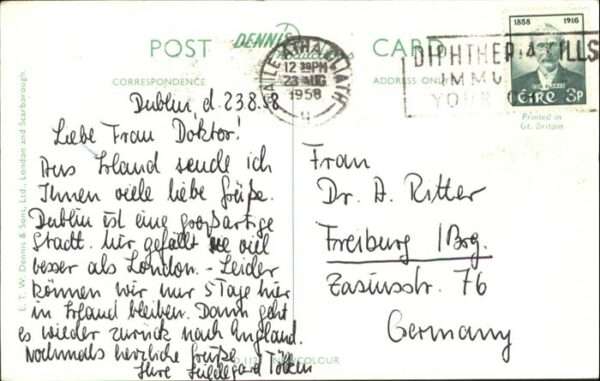 POST DENNIS CARD
CORRESPONDENCE
ADDRESS ONLY
BAILE ÁTHA CLIATH
12 30PM
23 AUG
1958
DIPHTHERIA KILLS
IMMU
YOUR
1858 1916
ÉIRE 3P
Printed in
Gt. Britain
E. T. W. Dennis & Sons, Ltd., London and Scarborough.
Dublin, d. 23.8.58
Liebe Frau Doktor!
Aus Irland sende ich
Ihnen viele liebe Grüße.
Dublin ist eine großartige
Stadt. Mir gefällt sie viel
besser als London. - Leider
können wir nur 5 Tage hier
in Irland bleiben. Dann geht
es wieder zurück nach England.
Nochmals herzliche Grüße
Ihre Hildegard
Frau
Dr. A. Ritter
Freiburg /Brg.
Zasiusstr. 76
Germany
COLOUR